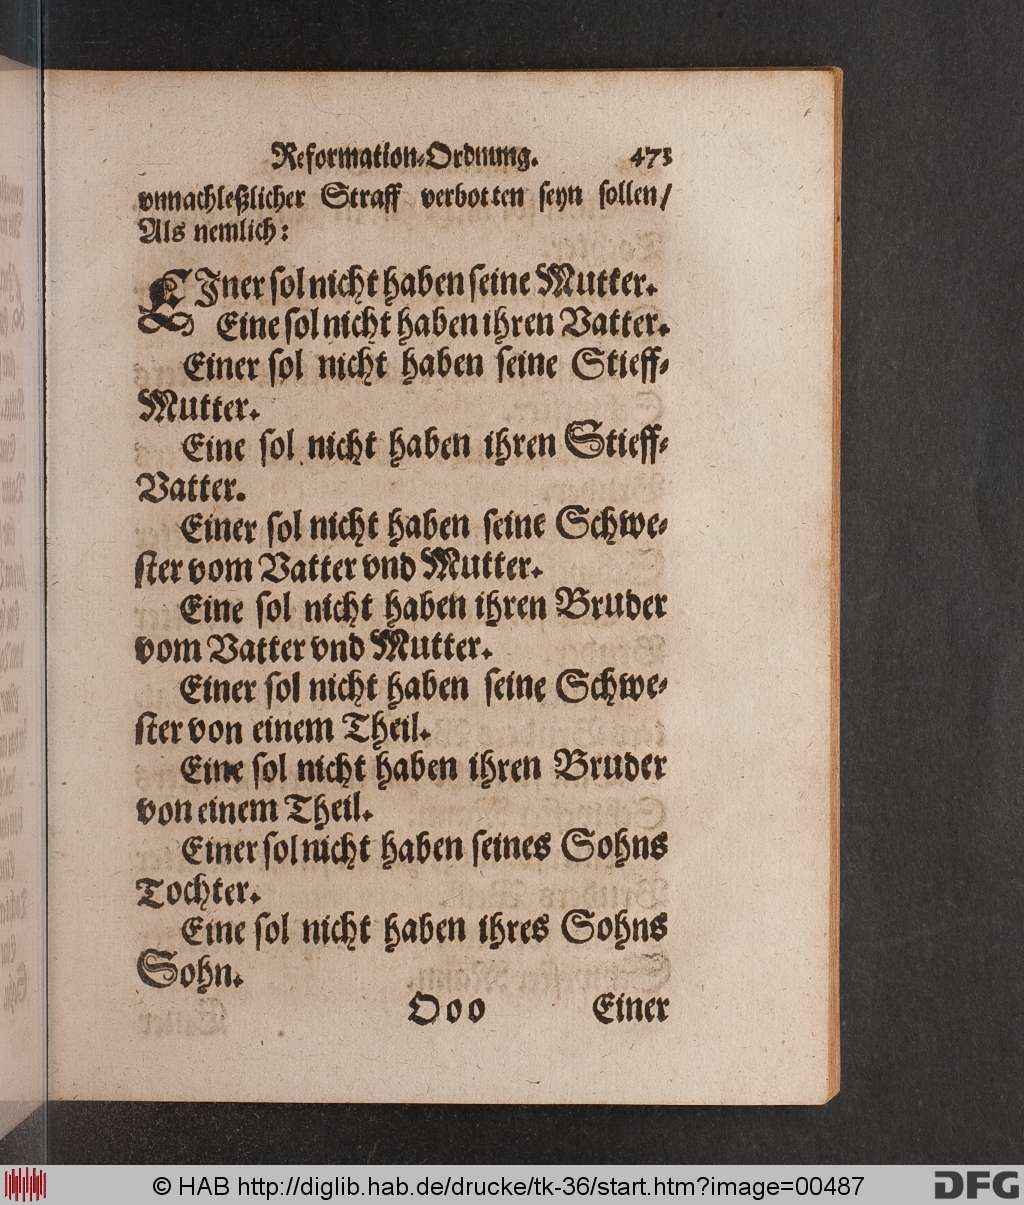 Reformation-Ordnung. 473
vnnachleßlicher Straff verbotten seyn sollen/
Als nemlich:
EIner sol nicht haben seine Mutter.
Eine sol nicht haben ihren Vatter.
Einer sol nicht haben seine Stieff-
Mutter.
Eine sol nicht haben ihren Stieff-
Vatter.
Einer sol nicht haben seine Schwe-
ster vom Vatter vnd Mutter.
Eine sol nicht haben ihren Bruder
vom Vatter vnd Mutter.
Einer sol nicht haben seine Schwe-
ster von einem Theil.
Eine sol nicht haben ihren Bruder
von einem Theil.
Einer sol nicht haben seines Sohns
Tochter.
Eine sol nicht haben ihres Sohns
Sohn.
Ooo Einer
© HAB http://diglib.hab.de/drucke/tk-36/start.htm?image=00487
DFG